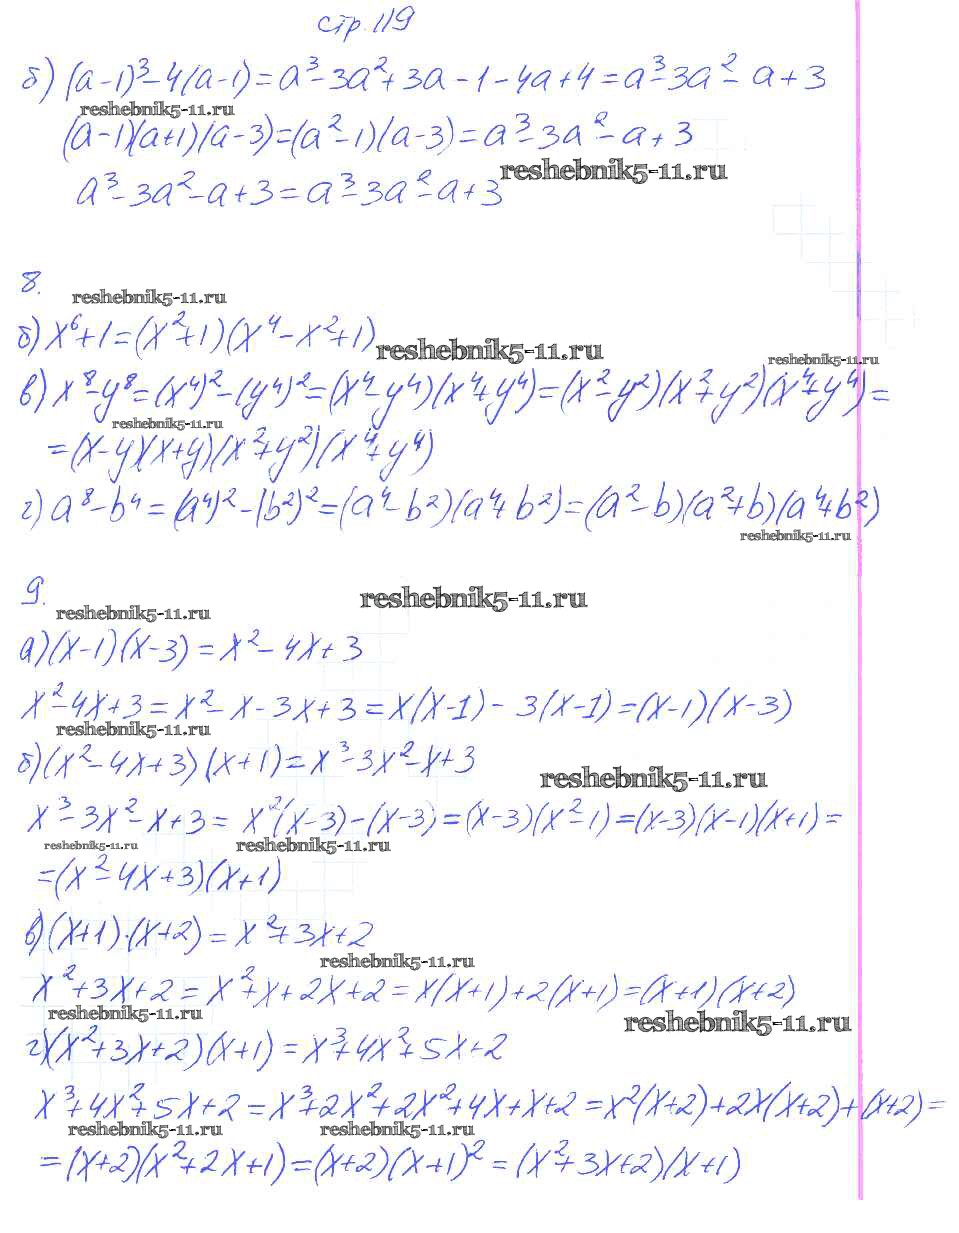 стр. 119
б) (a-1)³-4(a-1)=a³-3a²+3a-1-4a+4=a³-3a²-a+3
reshebnik5-11.ru
(a-1)(a+1)(a-3)=(a²-1)(a-3)=a³-3a²-a+3
reshebnik5-11.ru
a³-3a²-a+3=a³-3a²-a+3
8.
reshebnik5-11.ru
б) x⁶+1=(x²+1)(x⁴-x²+1)
reshebnik5-11.ru
reshebnik5-11.ru
в) x⁸-y⁸=(x⁴)²-(y⁴)²=(x⁴-y⁴)(x⁴+y⁴)=(x²-y²)(x²+y²)(x⁴+y⁴)=
reshebnik5-11.ru
=(x-y)(x+y)(x²+y²)(x⁴+y⁴)
г) a⁸-b⁴=(a⁴)²-(b²)²=(a⁴-b²)(a⁴+b²)=(a²-b)(a²+b)(a⁴+b²)
reshebnik5-11.ru
9.
reshebnik5-11.ru
reshebnik5-11.ru
а) (x-1)(x-3)=x²-4x+3
x²-4x+3=x²-x-3x+3=x(x-1)-3(x-1)=(x-1)(x-3)
reshebnik5-11.ru
б) (x²-4x+3)(x+1)=x³-3x²-x+3
reshebnik5-11.ru
x³-3x²-x+3=x²(x-3)-(x-3)=(x-3)(x²-1)=(x-3)(x-1)(x+1)=
reshebnik5-11.ru
reshebnik5-11.ru
=(x²-4x+3)(x+1)
в) (x+1)·(x+2)=x²+3x+2
reshebnik5-11.ru
x²+3x+2=x²+x+2x+2=x(x+1)+2(x+1)=(x+1)(x+2)
reshebnik5-11.ru
reshebnik5-11.ru
г) (x²+3x+2)(x+1)=x³+4x²+5x+2
x³+4x²+5x+2=x³+2x²+2x²+4x+x+2=x²(x+2)+2x(x+2)+(x+2)=
reshebnik5-11.ru
reshebnik5-11.ru
=(x+2)(x²+2x+1)=(x+2)(x+1)²=(x²+3x+2)(x+1)